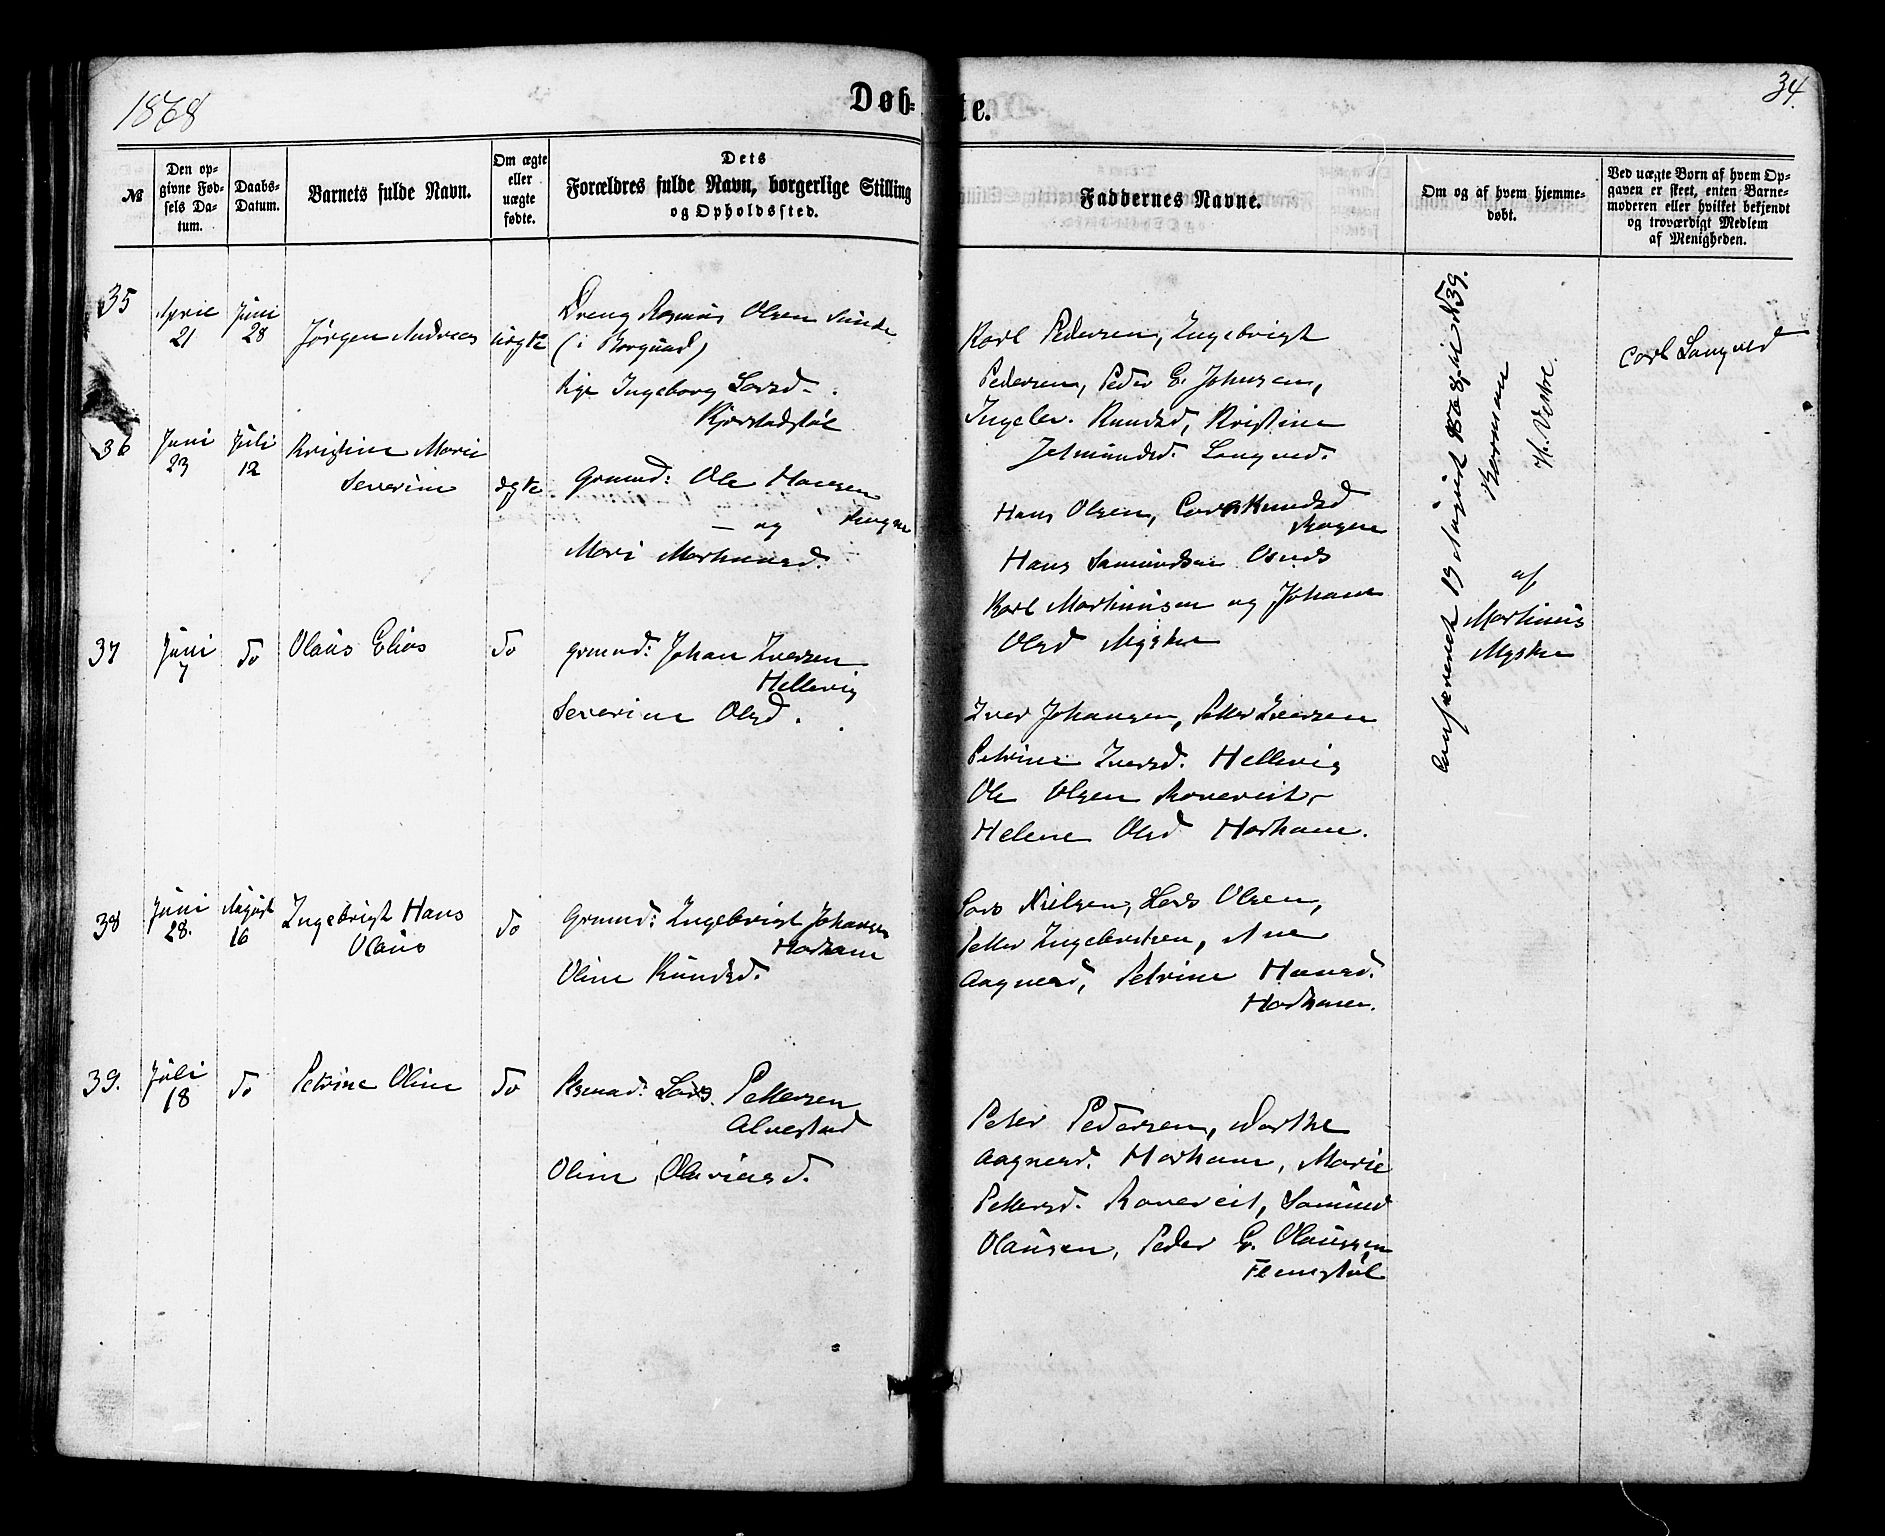 1868
Døb-
te.
34.
№
Den op-
givne Fød-
sels Da-
tum.
Daabs-
Datum.
Barnets fulde Navn.
Om ægte
eller
uægte
fødte.
Dets
Forældres fulde Navn, borgerlige Stilling
og Opholdssted.
Faddernes Navne.
Om og af hvem hjemme-
døbt.
Ved uægte Børn af hvem Op-
gaven er skeet, enten Barne-
moderen eller hvilket bekjendt
og troværdigt Medlem
af Menigheden.
35
April
21
Juni
28
Jørgen Andreas
uægte
Dreng Rasmus Olsen Sunde
(i Borgund)
Pige Ingeborg Larsd.
Kjerstadstøl
Karl Pedersen, Ingebrigt
Pedersen, Peder E. Johnsen,
Ingebr. Knudsd, Kristine
Jetmundsd. Longved.
Carl Longved
36
Juni
23
Juli
12
Kristine Marie
Severine
ægte
Grmnd: Ole Hansen
– og
Mari Martinusd.
Hans Olsen, Knudsd
Hans Samundsen
Karl Martinusen og Johan
Olsd Myskse
af
Martinus
37
Juni
7
do
Olaus Elias
do
Grmnd: Johan Iversen
Hellevig
Severine Olsd.
Iver Johansen, Petter Iversen
Petrine Iversd. Hellevig
Ole Olsen Roneveit
Helene Olsd Harham.
Confereret 19 August 1868 til N 39.
38
Juni
28.
August
16
Ingebrigt Hans
Olaus
do
Grmnd: Ingebrigt Johansen
Harham
Oline Knudsd.
Lars Nielsen, Lars Olsen,
Petter Ingebrigtsen, Ane
Aagnesd, Petrine Hansd.
Harham.
39.
Juli
18
do
Petrine Oline
do
Lars Pettersen
Alvestad
Oline
Peter Pedersen, Dorthe
Aagnesd. Harham, Marie
Pettersd. Roneveit, Samund
Olausen, Peder E. Olaussen
Flemstøl